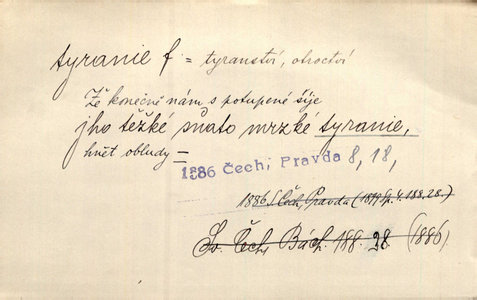 tyranie f. = tyranství, otroctví
Že konečně nám s potupené šíje
jho těžké sňato mrzké tyranie,
hnět obludy =
1886 Čech, Pravda 8, 18,
1886 S. Čech, Pravda (1899 Sp. 4. 188, 28.)
Sv. Čech, Bách. 188. 28. (1886)